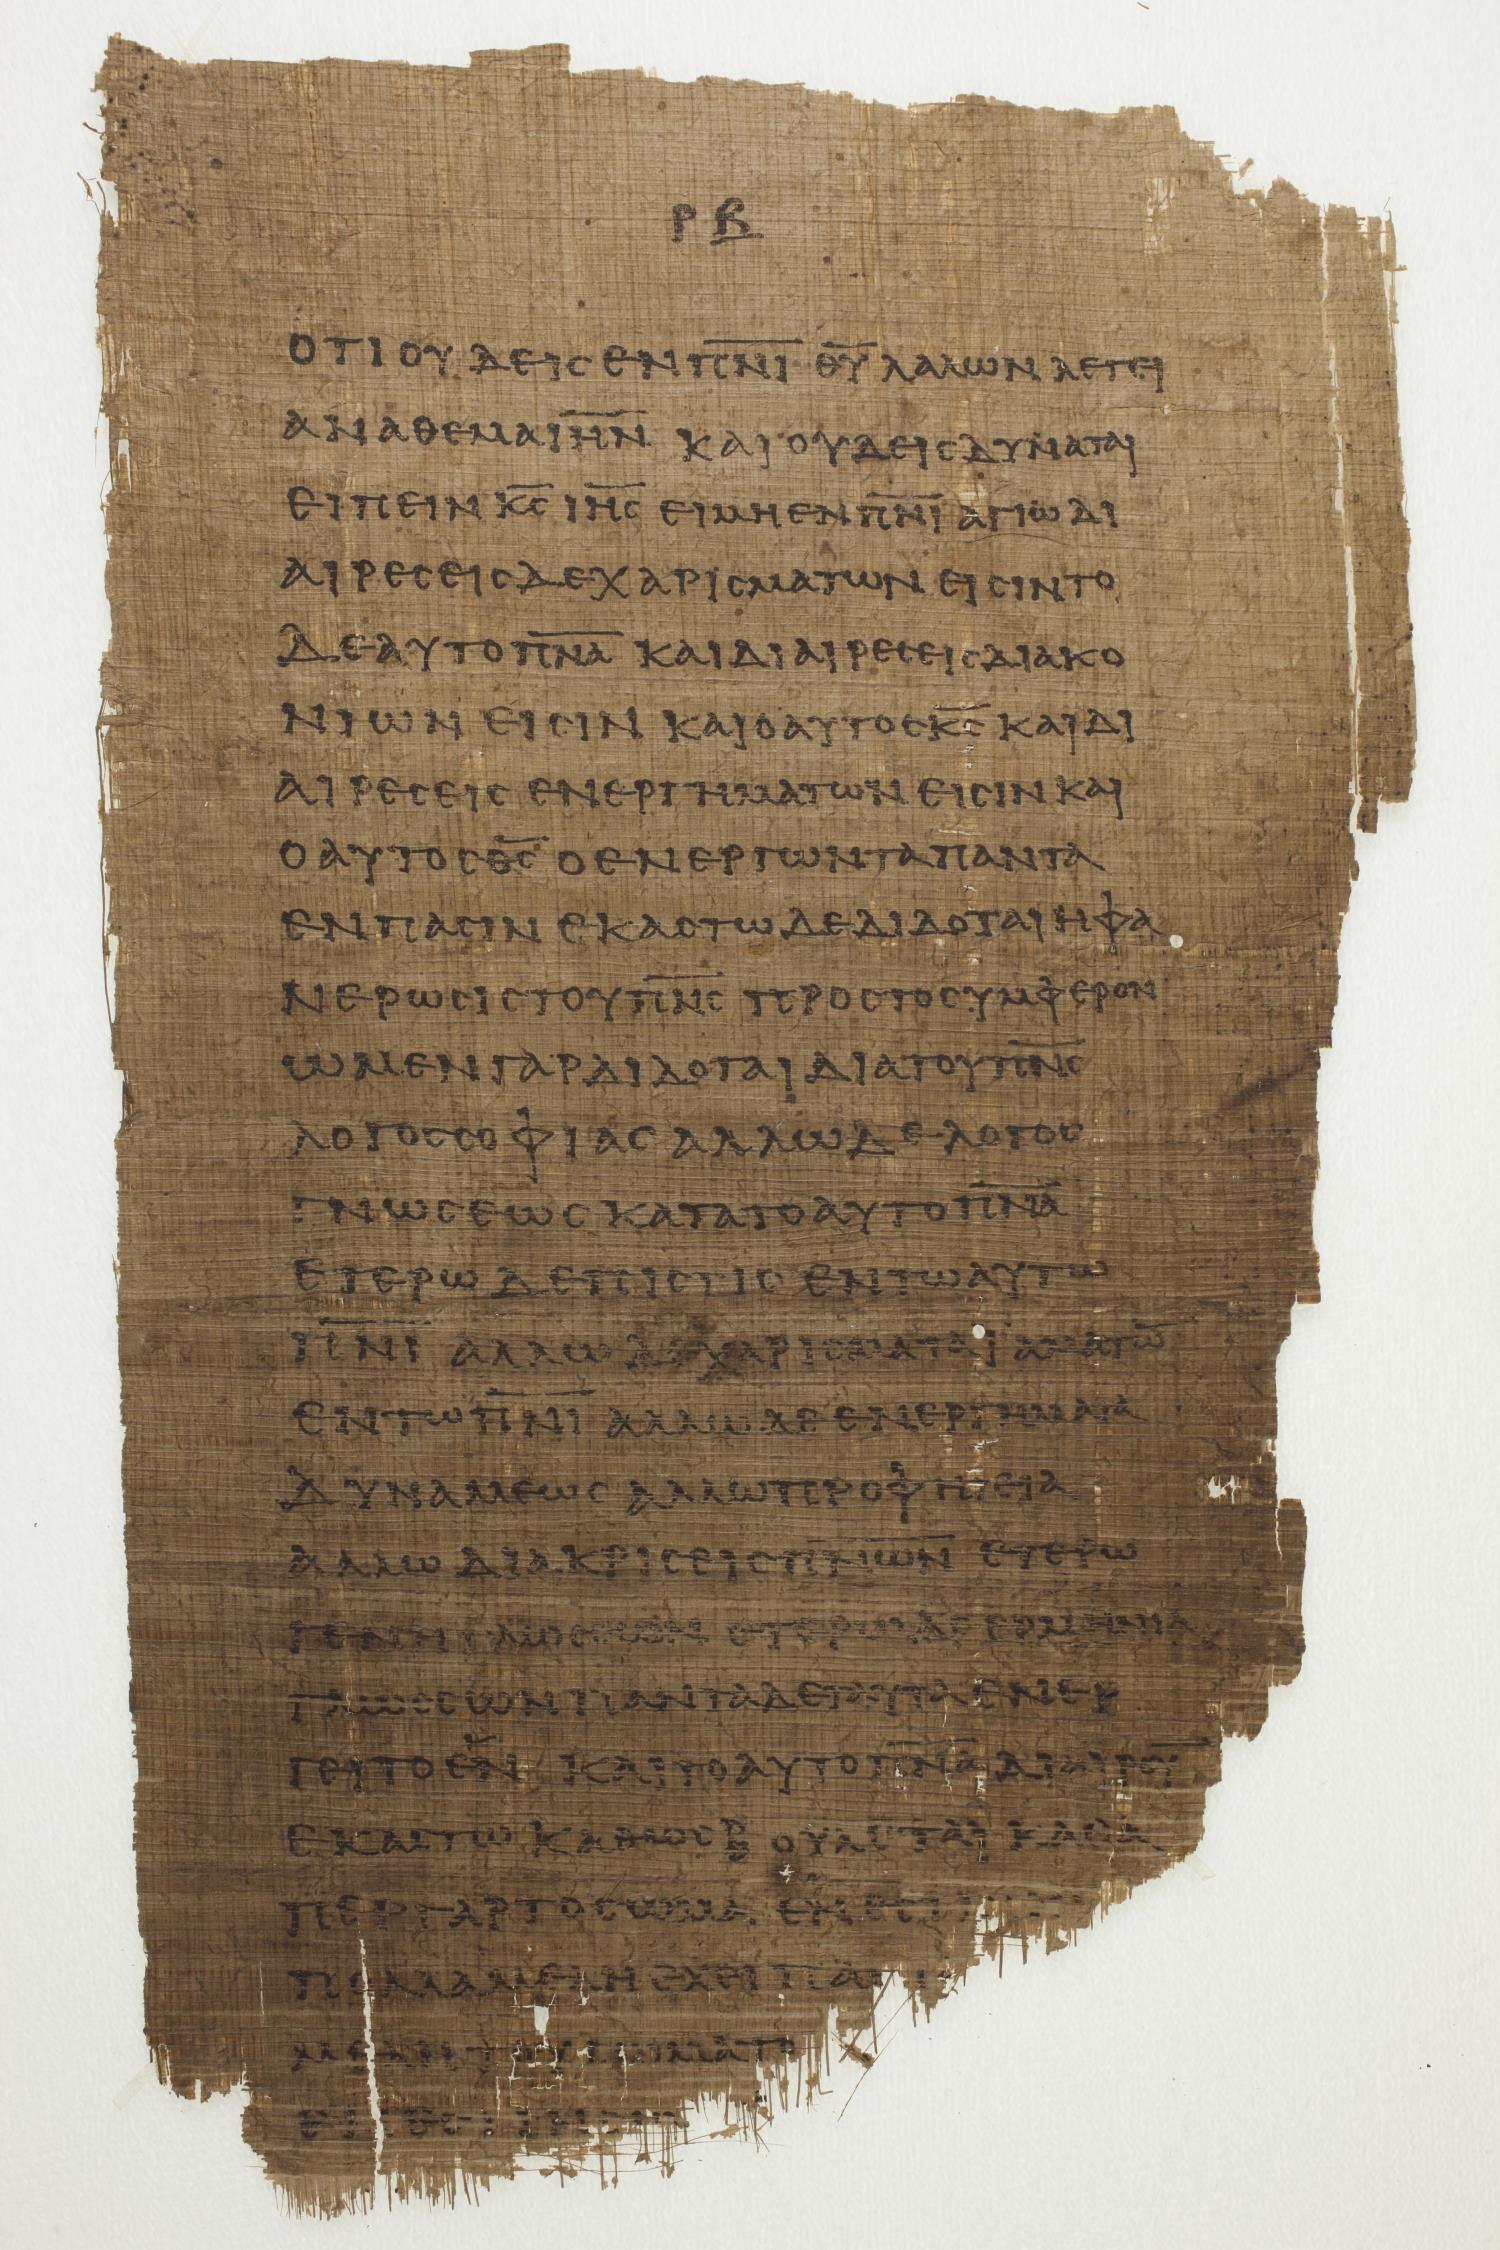 ΡΒ
ΟΤΙ ΟΥΔΕΙC ΕΝ Π̅Ν̅Ι̅ Θ̅Υ̅ ΛΑΛΩΝ ΛΕΓΕΙ
ΑΝΑΘΕΜΑ Ι̅Η̅Ν̅ ΚΑΙ ΟΥΔΕΙC ΔΥΝΑΤΑΙ
ΕΙΠΕΙΝ Κ̅C̅ Ι̅Η̅C̅ ΕΙ ΜΗ ΕΝ Π̅Ν̅Ι̅ ΑΓΙΩ ΔΙ
ΑΙΡΕCΕΙC ΔΕ ΧΑΡΙCΜΑΤΩΝ ΕΙCΙΝ ΤΟ
ΔΕ ΑΥΤΟ Π̅Ν̅Α̅ ΚΑΙ ΔΙΑΙΡΕCΕΙC ΔΙΑΚΟ
ΝΙΩΝ ΕΙCΙΝ ΚΑΙ Ο ΑΥΤΟC Κ̅C̅ ΚΑΙ ΔΙ
ΑΙΡΕCΕΙC ΕΝΕΡΓΗΜΑΤΩΝ ΕΙCΙΝ ΚΑΙ
Ο ΑΥΤΟC Θ̅C̅ Ο ΕΝΕΡΓΩΝ ΤΑ ΠΑΝΤΑ
ΕΝ ΠΑCΙΝ ΕΚΑCΤΩ ΔΕ ΔΙΔΟΤΑΙ Η ΦΑ
ΝΕΡΩCΙC ΤΟΥ Π̅Ν̅C̅ ΠΡΟC ΤΟ CΥΜΦΕΡΟΝ
Ω ΜΕΝ ΓΑΡ ΔΙΔΟΤΑΙ ΔΙΑ ΤΟΥ Π̅Ν̅C̅
ΛΟΓΟC CΟΦΙΑC ΑΛΛΩ ΔΕ ΛΟΓΟC
ΓΝΩCΕΩC ΚΑΤΑ ΤΟ ΑΥΤΟ Π̅Ν̅Α̅
ΕΤΕΡΩ ΔΕ ΠΙCΤΙC ΕΝ ΤΩ ΑΥΤΩ
Π̅Ν̅Ι̅ ΑΛΛΩ ΔΕ ΧΑΡΙCΜΑΤΑ ΙΑΜΑΤΩ̅
ΕΝ ΤΩ Π̅Ν̅Ι̅ ΑΛΛΩ ΔΕ ΕΝΕΡΓΗΜΑΤΑ
ΔΥΝΑΜΕΩC ΑΛΛΩ ΠΡΟΦΗΤΕΙΑ
ΑΛΛΩ ΔΙΑΚΡΙCΕΙC Π̅Ν̅Ω̅Ν̅ ΕΤΕΡΩ
ΓΕΝΗ ΓΛΩCCΩΝ ΕΤΕΡΩ ΔΕ ΕΡΜΗΝΙΑ
ΓΛΩCCΩΝ ΠΑΝΤΑ ΔΕ ΤΑΥΤΑ ΕΝΕΡ
ΓΕΙ ΤΟ ΕΝ ΚΑΙ ΤΟ ΑΥΤΟ Π̅Ν̅Α̅ ΔΙΑΙΡΟΥ̅
ΕΚΑCΤΩ ΚΑΘΩC ΒΟΥΛΕΤΑΙ ΚΑΘΑ
ΠΕΡ ΓΑΡ ΤΟ CΩΜΑ ΕΝ ΕCΤΙΝ
ΠΟΛΛΑ ΜΕΛΗ ΕΧΕΙ ΠΑΝ
ΜΕΛΗ ΤΟΥ CΩΜΑΤΟ